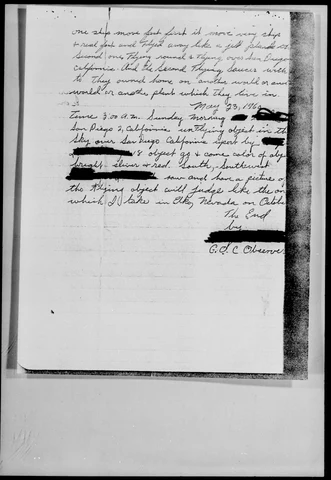 one ship move fast first it move very ship
& real fast and Flyed away like a jet
Second one, Flying round & flying over San Diego
California. And the Second Flying Saucer went
to they owned home on another world or
world or another planet which they live in.
May 23, 1960
Time 3:00 A.M. Sunday morning
San Diego 2, California unFlying object in th
Sky over San Diego California Spers by
18 object 99 & come color of obj
South, Southwest
saw and have a picture o
the Flying object will Judge like the on
which I take in Elko, Nevada on Octob
The End
by
G.O.C Observe